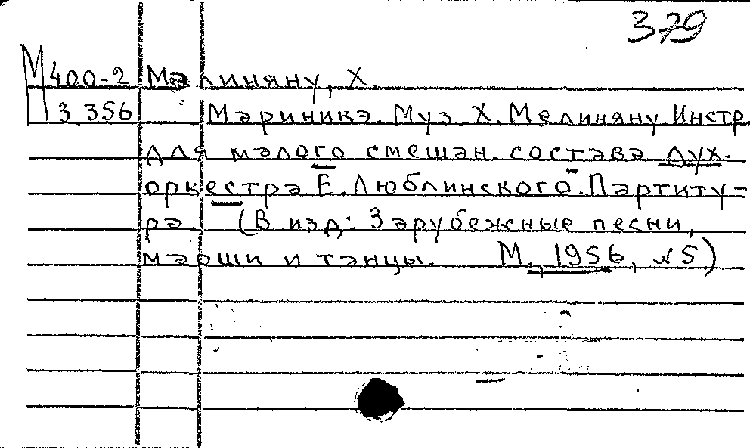 379
М400-2 Мелиняну, Х.
3 356 Мариникэ. Муз. Х. Мелиняну Инстр.
для малого смешан. состава дух.
оркестра Е. Люблинского. Партиту-
ра (В изд: Зарубежные песни,
марши и танцы. М., 1956, №5)